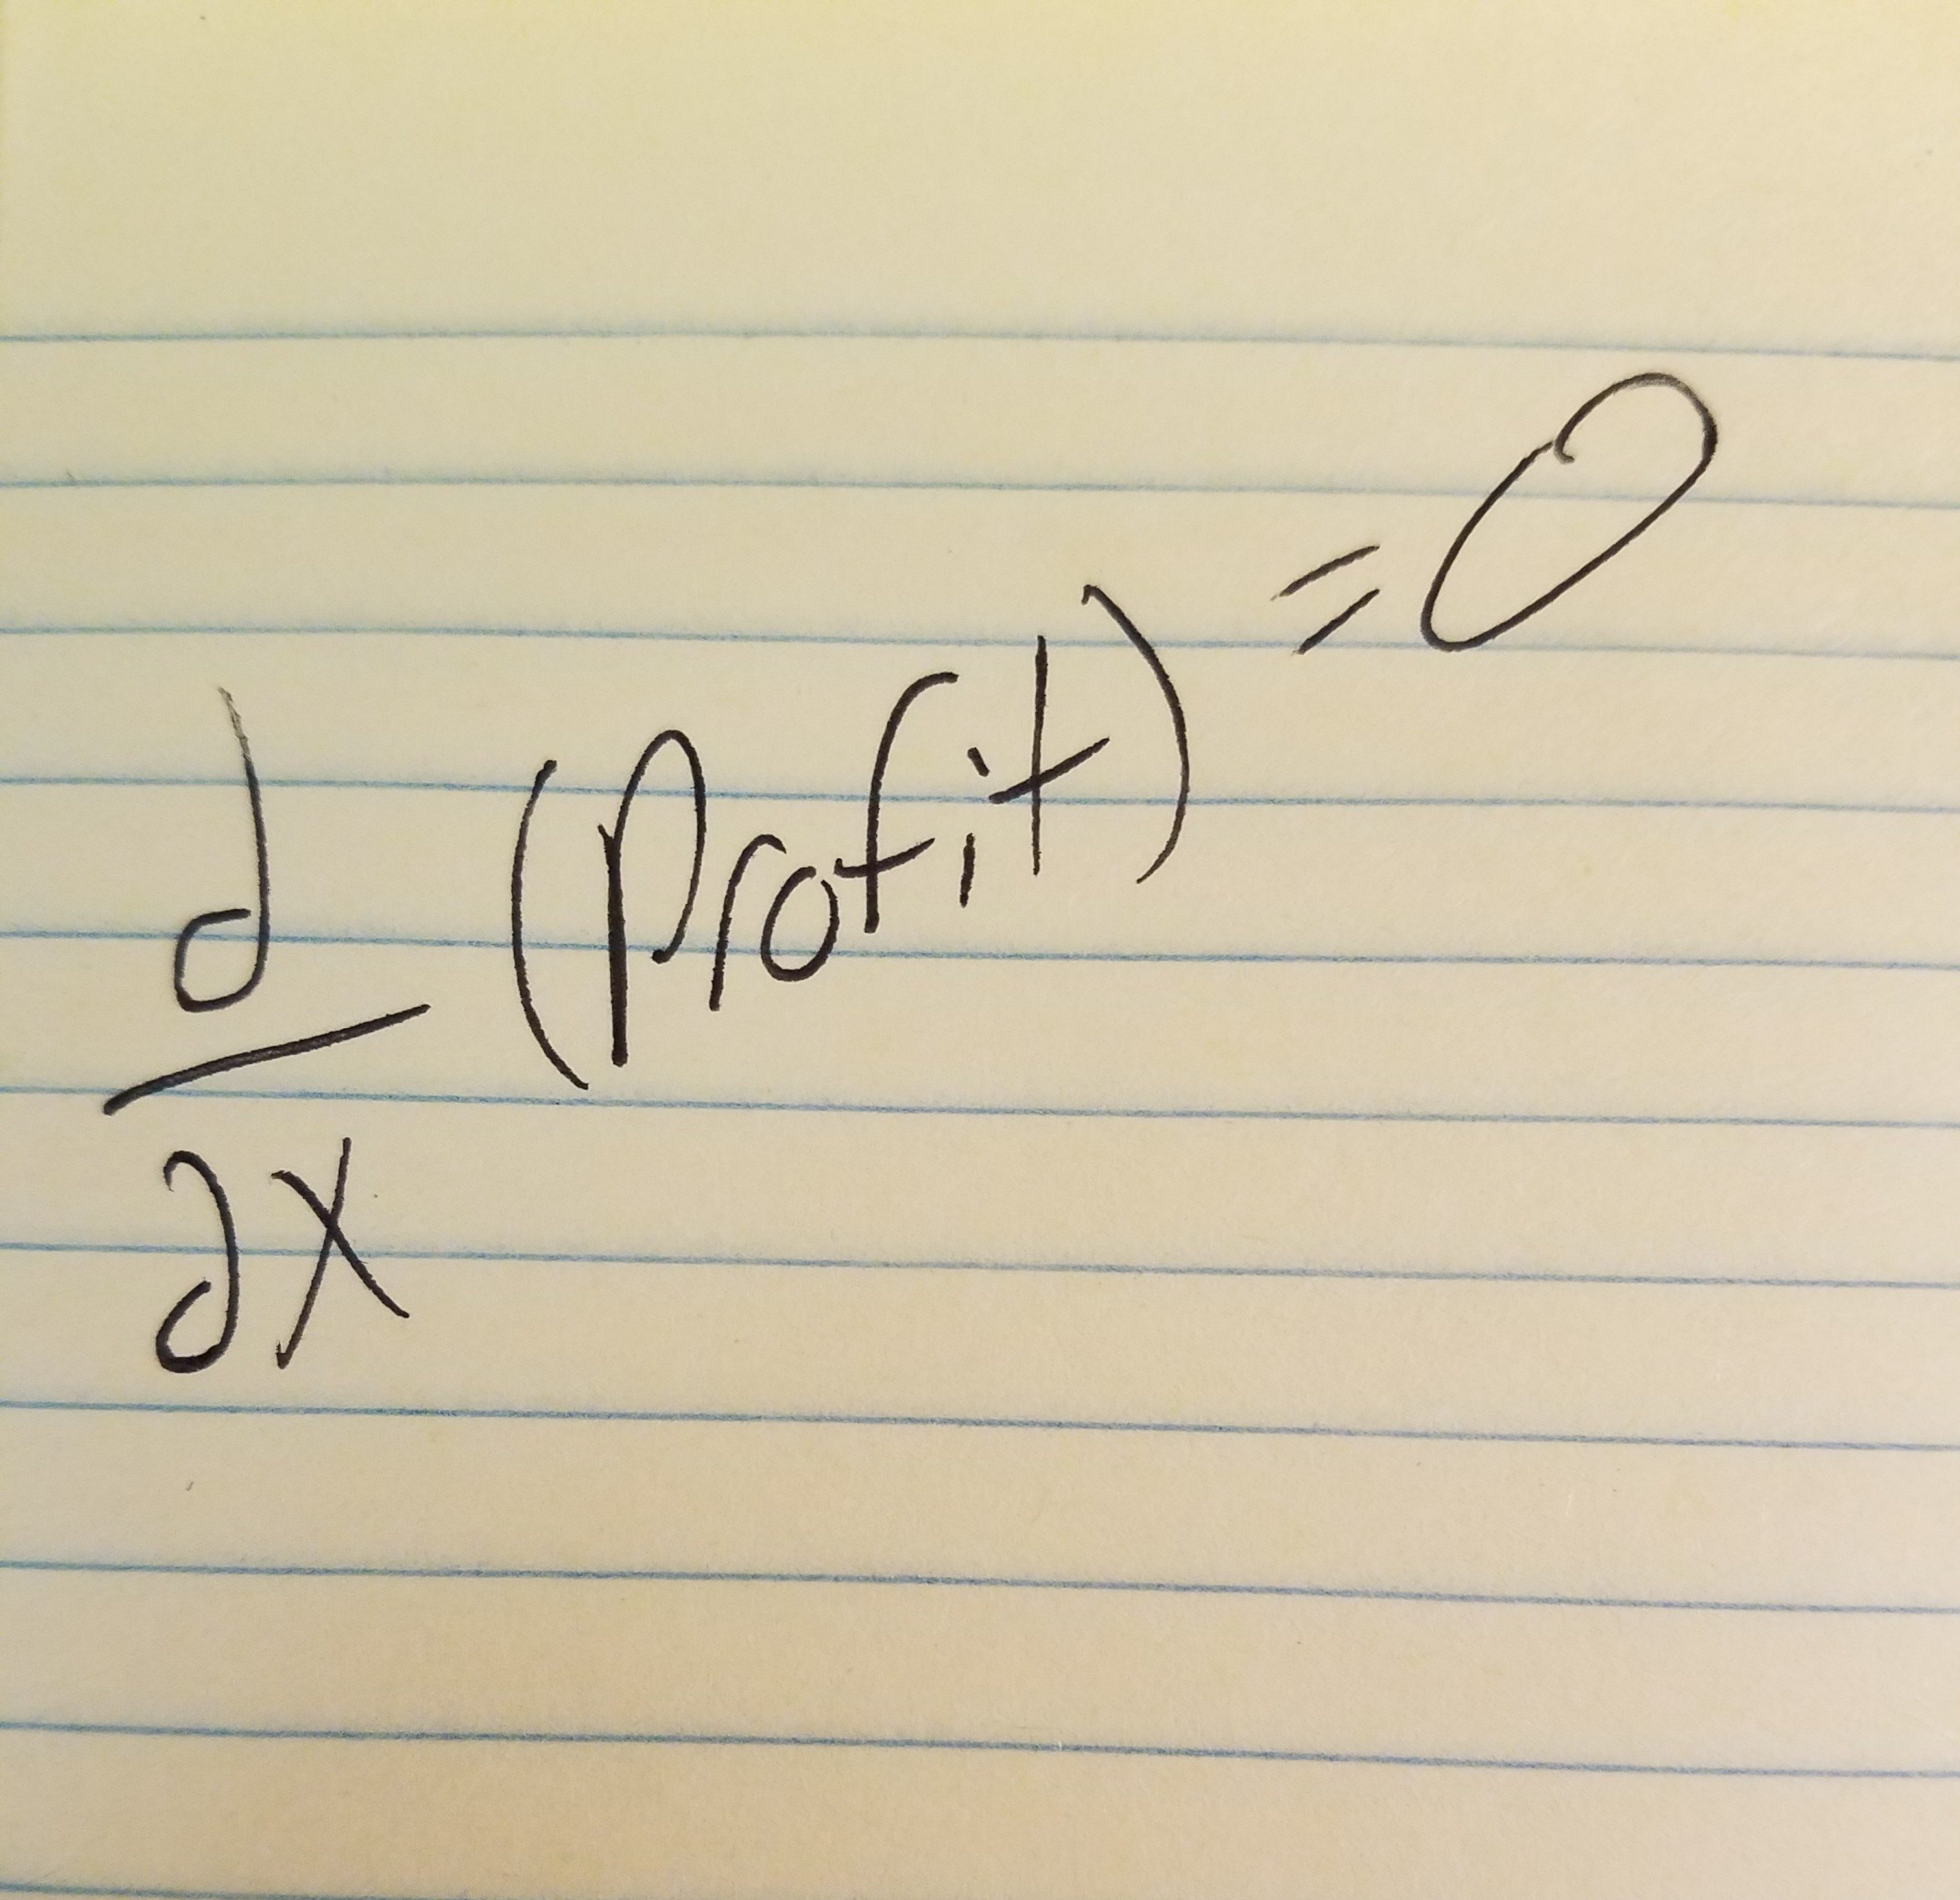 d/dx (Profit) = 0